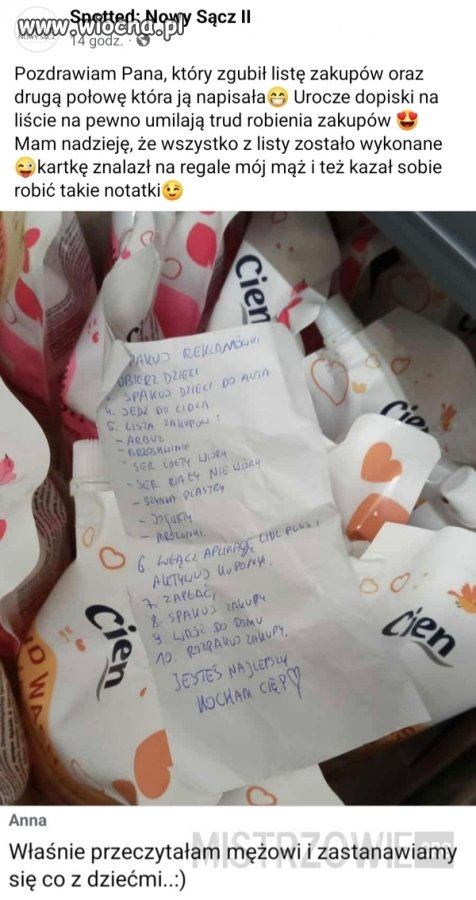 Spotted: Nowy Sącz II
www.wiocha.pl
14 godz.
Pozdrawiam Pana, który zgubił listę zakupów oraz
drugą połowę która ją napisała😁 Urocze dopiski na
liście na pewno umilają trud robienia zakupów 😍
Mam nadzieję, że wszystko z listy zostało wykonane
😜kartkę znalazł na regale mój mąż i też kazał sobie
robić takie notatki😉
Cien
PAKUJ REKLAMÓWKI
UBIERZ DZIECI
3. SPAKUJ DZIECI DO AUTA
4. JEDŹ DO LIDLA
5. LISTA ZAKUPÓW:
- ARBUZ
- BRZOSKWINIE
- SER ŻÓŁTY WIÓRY
- SER BIAŁY NIE WIÓRY
- SZYNKA PLASTRY
- JOGURTY
6. WŁĄCZ APLIKACJĘ LIDL PLUS I
AKTYWUJ KUPONY.
7. ZAPŁAĆ
8. SPAKUJ ZAKUPY
9. WRÓĆ DO DOMU
10. ROZPAKUJ ZAKUPY.
JESTEŚ NAJLEPSZY
KOCHAM CIĘ!
Cien
Cien
Cien
Anna
MISTRZOWIE
ORG
Właśnie przeczytałam mężowi i zastanawiamy
się co z dziećmi..:)